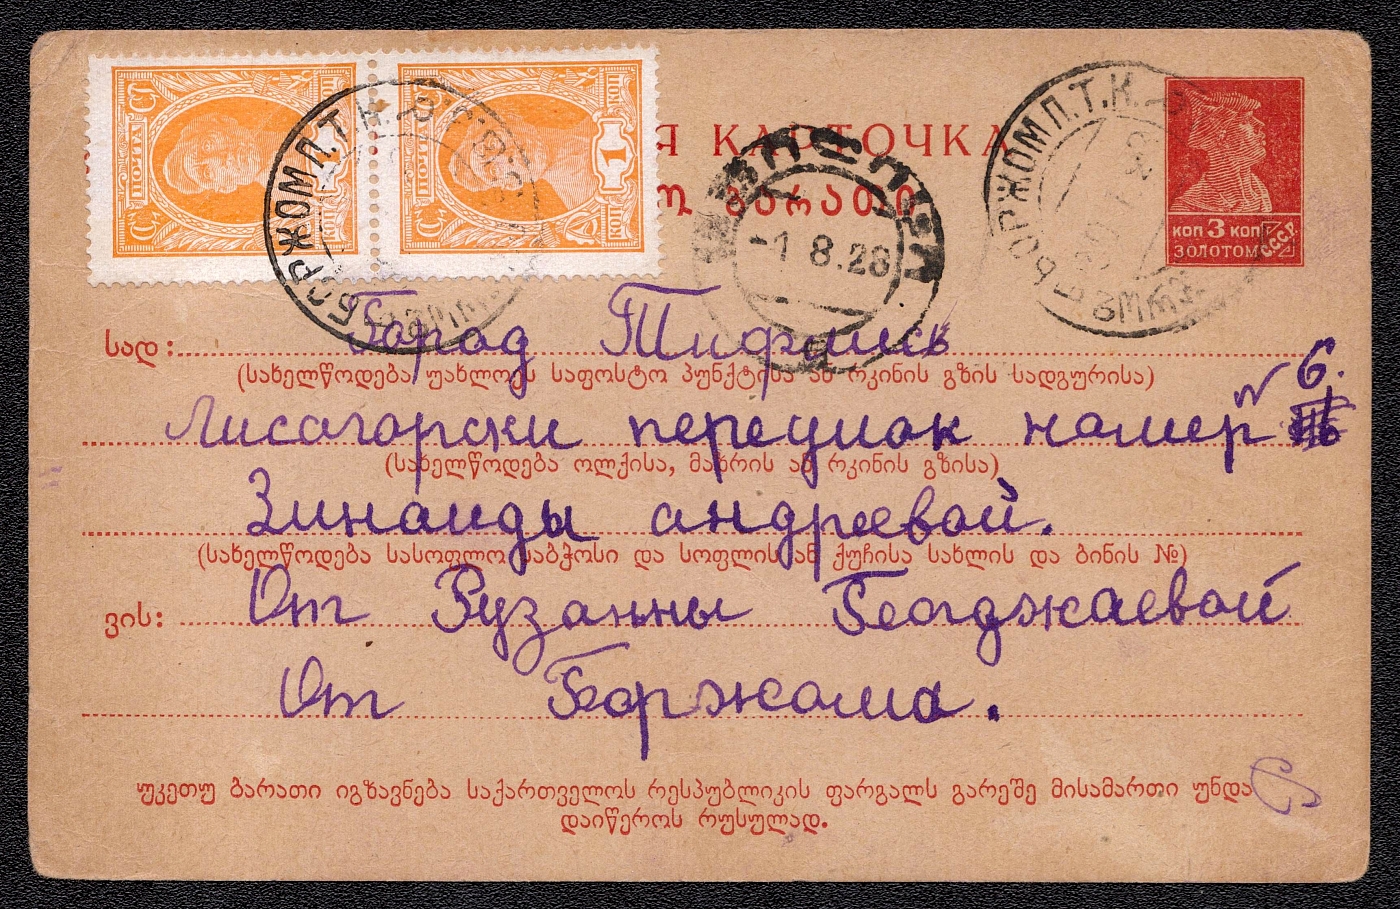 Я КАРТОЧКА
ბარათი
ПОЧТА
1
КОП
БОРЖОМ П.Т.К.
-1 8.28
БОРЖОМ П.Т.К.
КОП 3 КОП
ЗОЛОТОМ
СССР
სად:
Город Тифлись
(სახელწოდება უახლოეს საფოსტო პუნქტისა ან რკინის გზის სადგურისა)
Лисогорски переулок намер № 6.
(სახელწოდება ოლქისა, მაზრის ან რკინის გზისა)
Зинаиды андреевой.
(სახელწოდება სასოფლო საბჭოსი და სოფლის ან ქუჩისა სახლის და ბინის №)
ვის:
От Рузанны Беогджаевой
От Боржома.
უკეთუ ბარათი იგზავნება საქართველოს რესპუბლიკის ფარგალს გარეშე მისამართი უნდა
დაიწეროს რუსულად.